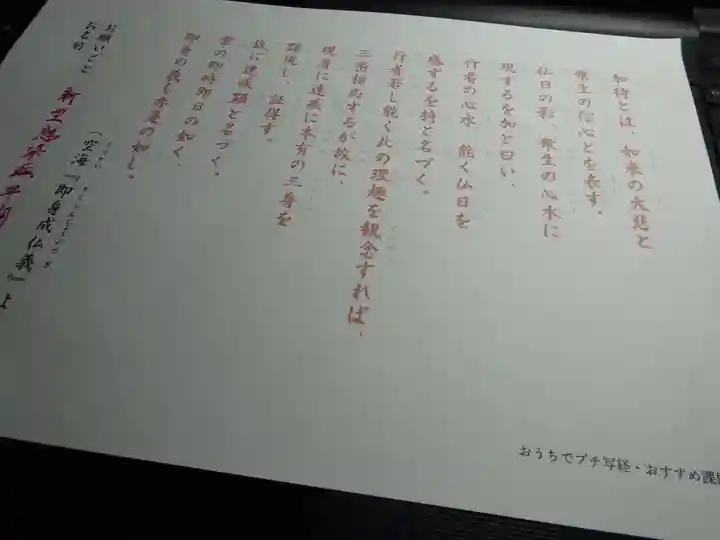 加持とは、如来の大悲と
衆生の信心とを表す。
仏日の影、衆生の心水に
現するを加と曰い、
行者の心水 能く仏日を
感ずるを持と名づく。
行者若し能く此の理趣を観念すれば、
三密相応するが故に、
現身に速疾に本有の三身を
顕現し、証得す。
故に速疾顕と名づく。
常の即時即日の如く、
即身の義も亦是の如し。
(空海『即身成仏義』よ
お願いごと
お名前
おうちでプチ写経・おすすめ課題